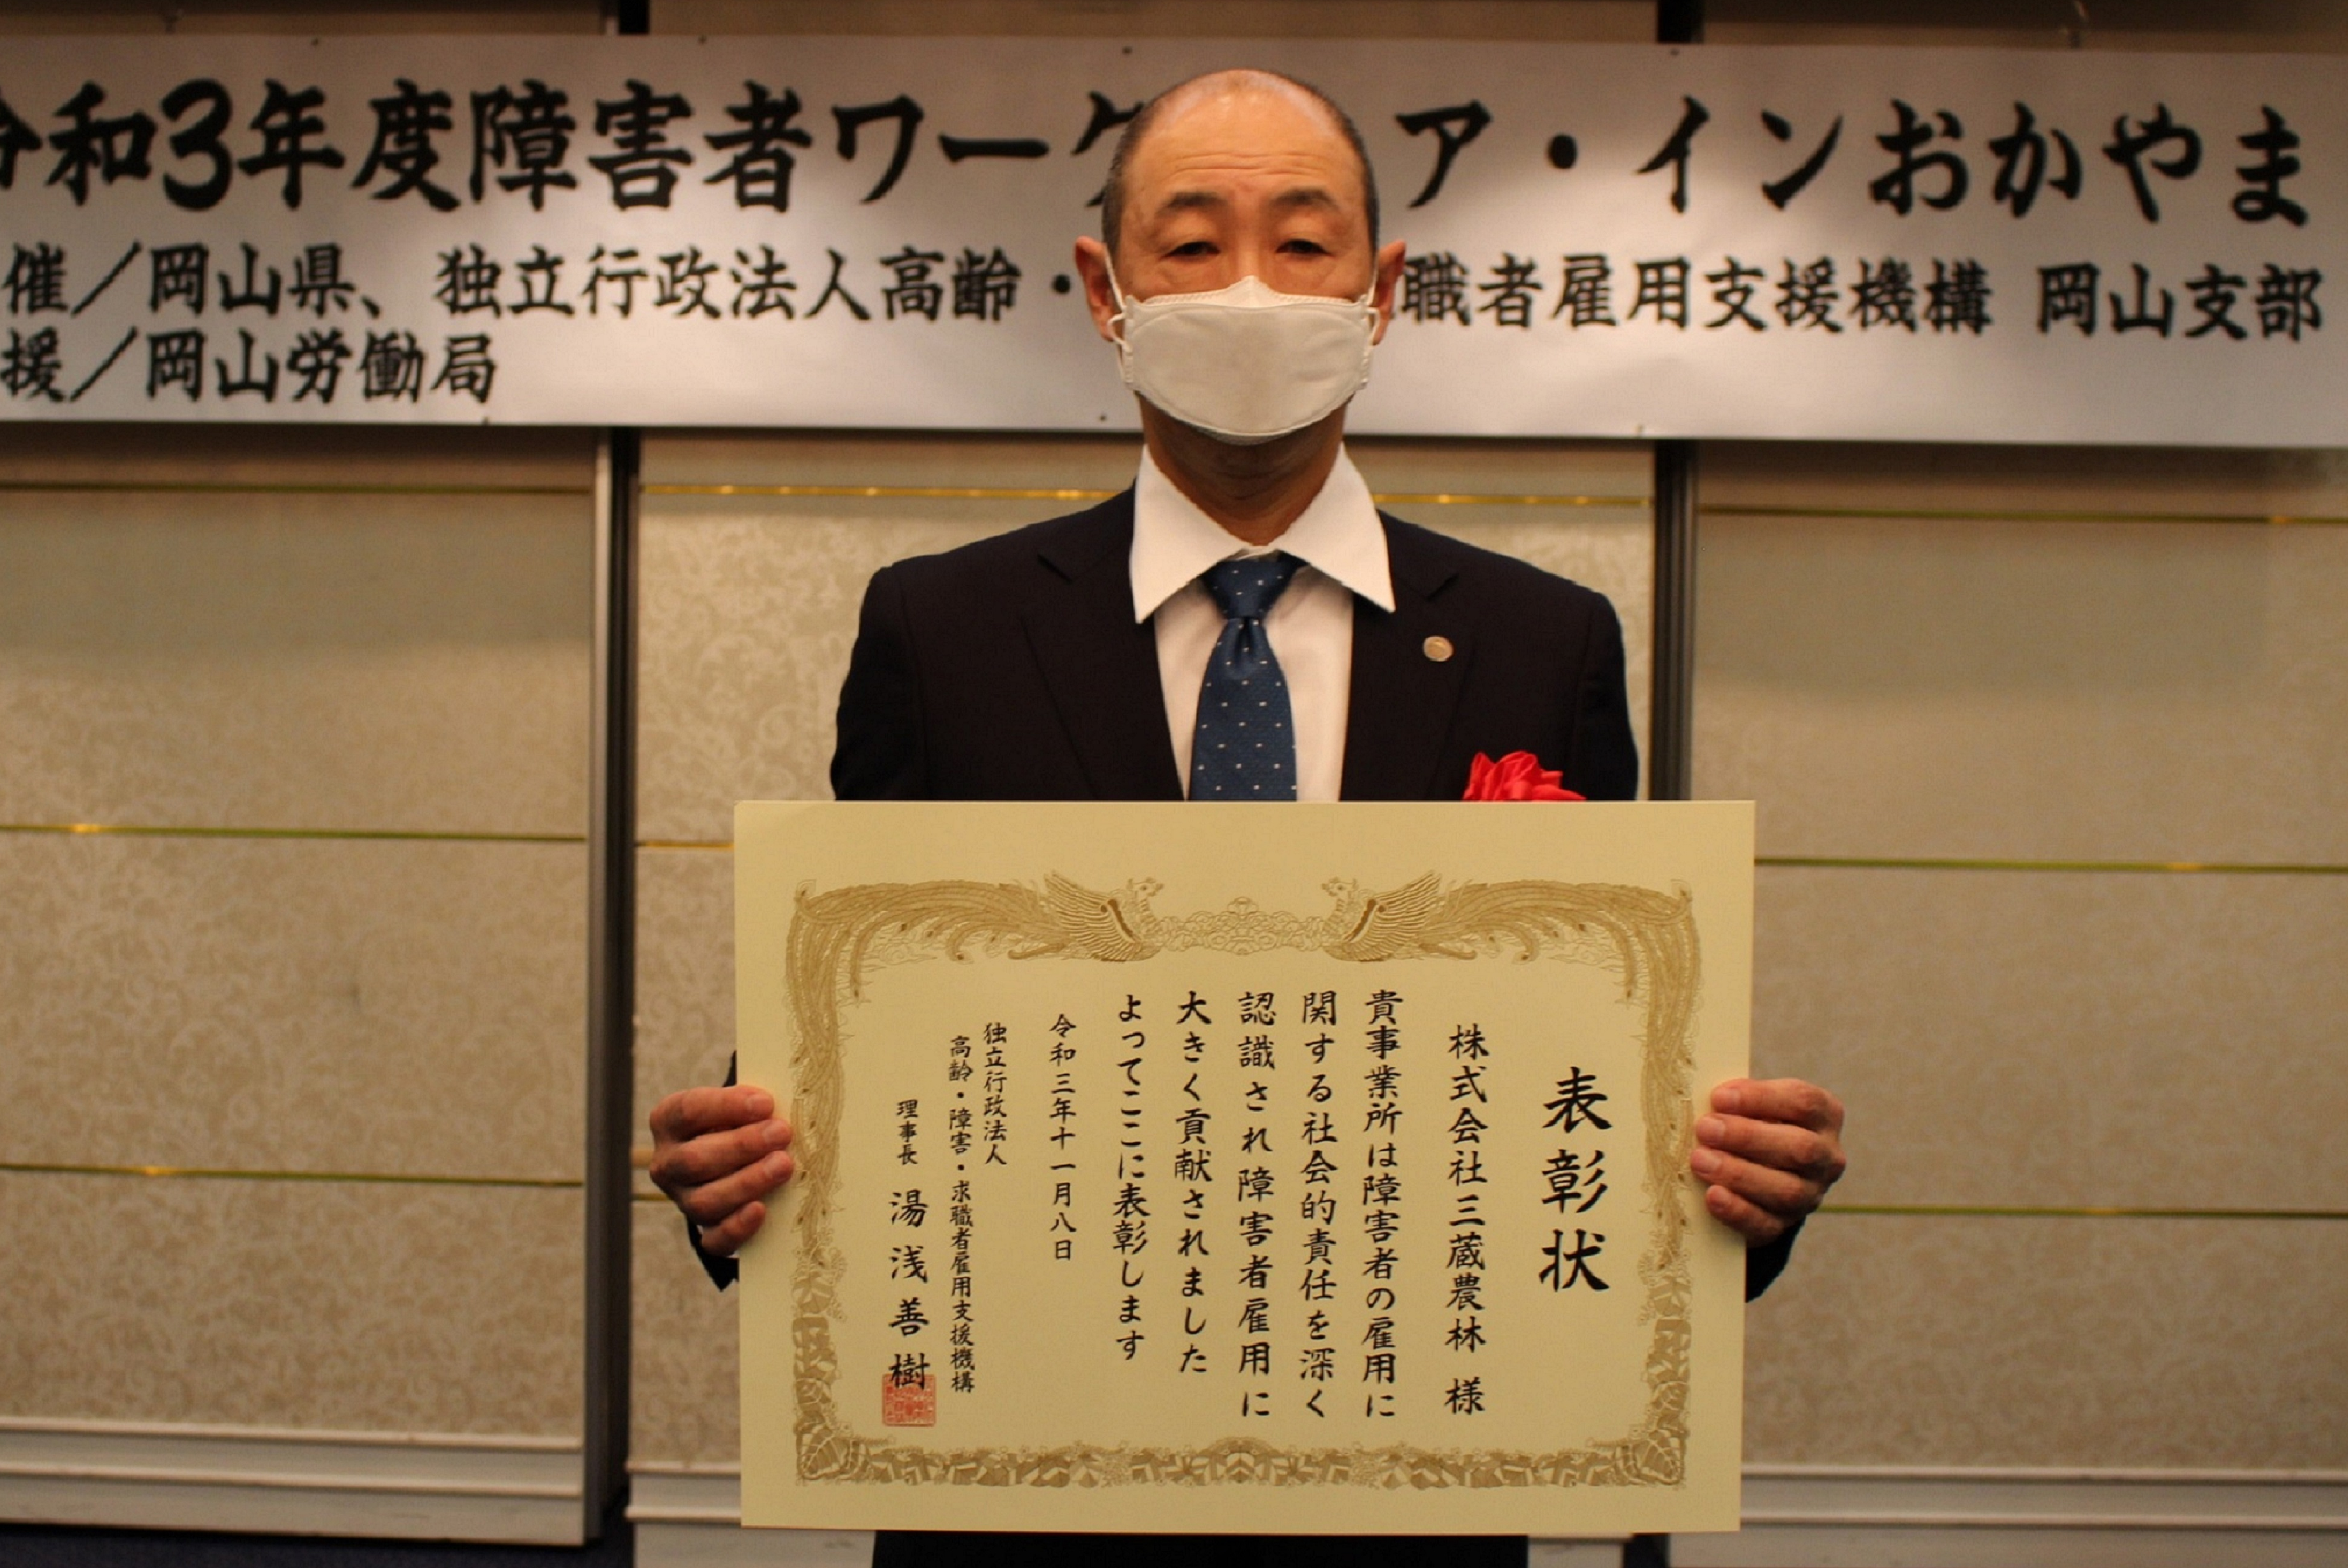 令和3年度障害者ワーク ア・インおかやま
催／岡山県、独立行政法人高齢・ 職者雇用支援機構 岡山支部
援／岡山労働局
表彰状
株式会社三蔵農林 様
貴事業所は障害者の雇用に
関する社会的責任を深く
認識され障害者雇用に
大きく貢献されました
よってここに表彰します
令和三年十一月八日
独立行政法人
高齢・障害・求職者雇用支援機構
理事長 湯浅善樹